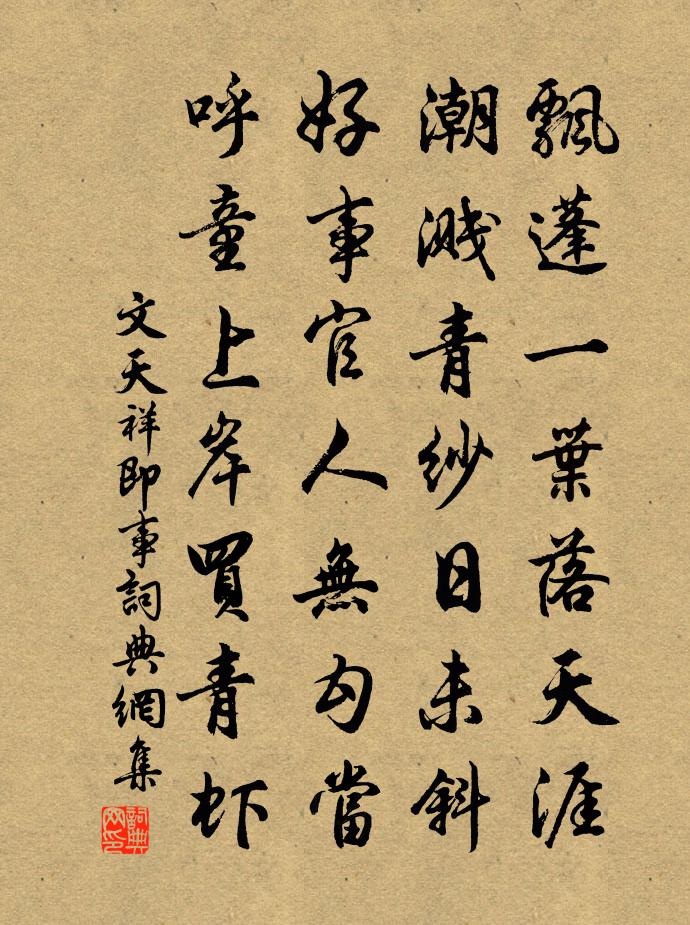 飄蓬一葉落天涯
潮濺青紗日未斜
好事官人無勾當
呼童上岸買青虾
文天祥即事詞典網集
詞典网印